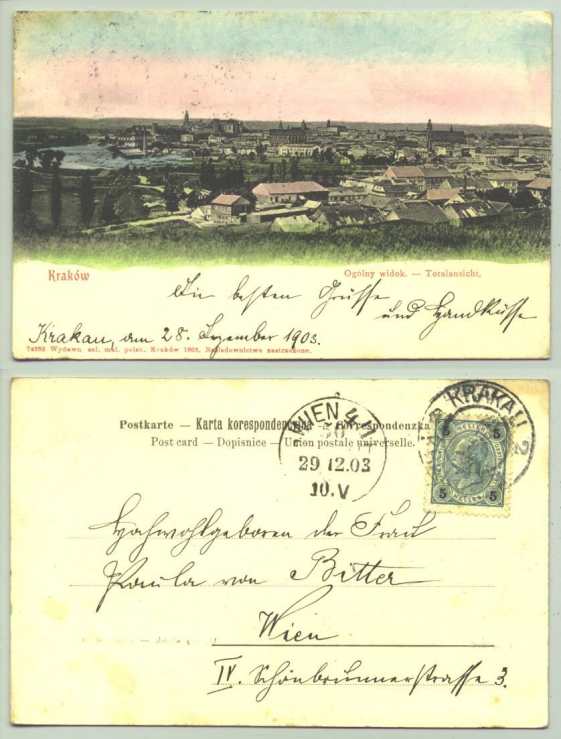 Kraków
Ogólny widok. — Totalansicht.
Die besten Grüsse
und Handküsse
Krakau, am 28. Dezember 1903.
Wydawn. sal. mal. polsk. Kraków 1903. Nakładownictwo zastrzeżone.
Postkarte — Karta korespondencyjna — Korrespondenzka
Post card — Dopisnice — Union postale universelle.
WIEN 4/1
29 12.03
10.V
KRAKAU
2
5 5
5 5
Hochwohlgeboren der Frau
Paula von Bitter
Wien
IV. Schönbrunnerstrasse 3.